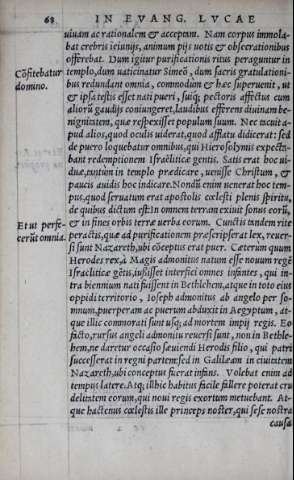 68 IN EVANG. LVCAE
uiuam ac rationalem & acceptam. Nam corpus immola-
bat crebris ieiunijs, animum pijs uotis & obsecrationibus
offerebat. Dum igitur purificationis ritus peraguntur in
Cõfitebatur templo, dum uaticinatur Simeõ, dum sacris gratulationi-
domino. bus redundant omnia, commodùm & hæc superuenit, ut
& ipsa testis esset nati pueri, suúq; pectoris affectus cum
aliorũ gaudijs coniungeret, laudibus efferens diuinam be-
nignitatem, quæ respexisset populum suum. Nec tacuit a-
pud alios, quod oculis uiderat, quod afflatu didicerat: sed
de puero loquebatur omnibus, qui Hierosolymis expecta-
bant redemptionem Israëliticæ gentis. Satis erat hoc ui-
duæ, tantùm in templo prædicare, uenisse Christum, &
paucis auidis hoc indicare. Nondũ enim uenerat hoc tem-
pus, quod seruatum erat apostolis cœlesti plenis spiritu,
de quibus dictum est: In omnem terram exiuit sonus eorũ,
Et ut perfe- & in fines orbis terræ uerba eorum. Cunctis tandem rite
cerũt omnia. peractis, quæ ad purificationem præscripserat lex, reuer-
si sunt Nazareth, ubi cõceptus erat puer. Cæterùm quum
Herodes rex, à Magis admonitus natum esse nouum regẽ
Israëliticæ gẽtis, iussisset interfici omnes infantes, qui in-
tra biennium nati fuissent in Bethlehem, atque in toto eius
oppidi territorio, Ioseph admonitus ab angelo per so-
mnum, puerperam ac puerum abduxit in Aegyptum, at-
que illic commorati sunt usq; ad mortem impij regis. Eo
facto, rursus angeli admonitu reuersi sunt, non in Bethle-
hem, ne daretur occasio sæuiendi Herodis filio, qui patri
successerat in regni partem: sed in Galilæam in ciuitatem
Nazareth, ubi conceptus fuerat infans. Volebat enim ad
tempus latere. Atq; illhic habitus facile fallere poterat cru
delitatem eorum, qui noui regis exortum metuebant. At-
que hactenus cœlestis ille princeps noster, qui sese nostra
causa